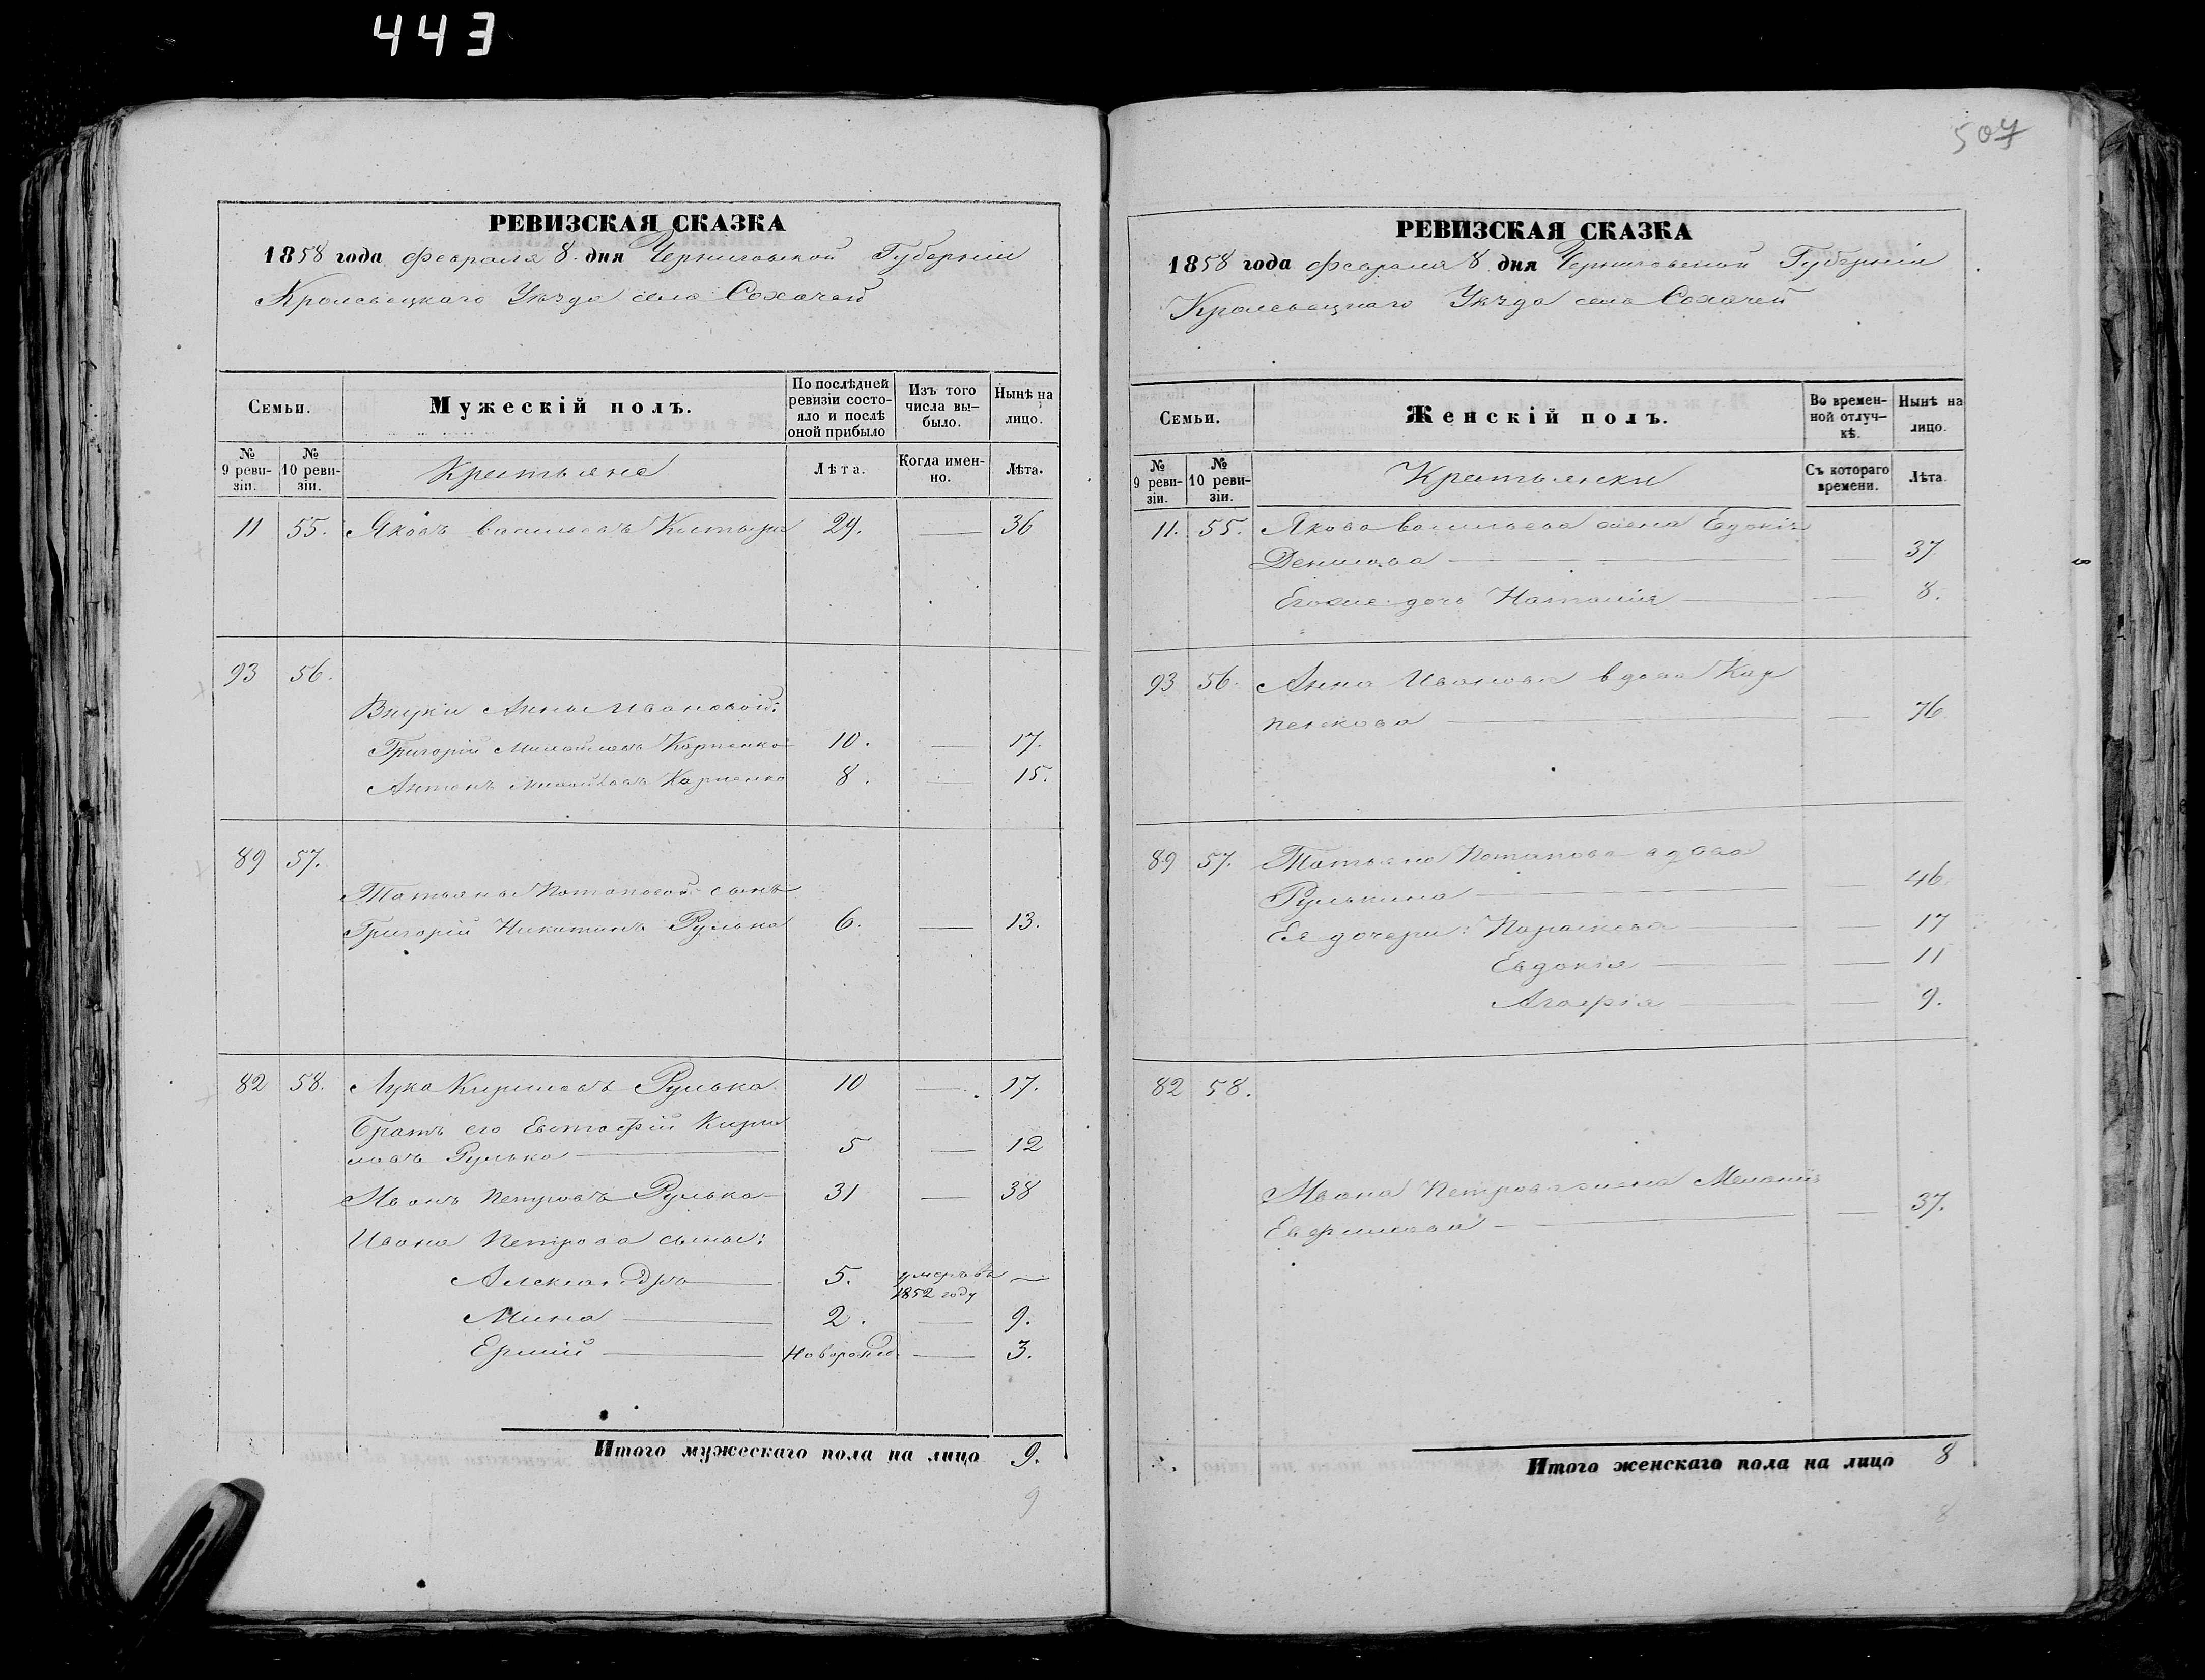 443
507
РЕВИЗСКАЯ СКАЗКА
1858 года февраля 8 дня Черниговской Губернии
Кролевецкаго Уѣзда села Сохачей
Семьи.
Мужескій полъ.
По послѣдней ревизіи состояло и послѣ оной прибыло
Изъ того числа выбыло.
Нынѣ на лицо.
№ 9 ревизіи.
№ 10 ревизіи.
Крестьяне
Лѣта.
Когда именно.
Лѣта.
11 55. Яковъ Васильевъ 29. — 36
93 56.
Внуки Анны Ивановой:
Григорій Михайловъ Карпенко 10. — 17.
Антонъ Михайловъ Карпенко 8. — 15.
89 57.
Татьяны Потаповой сынъ
Григорій Никитинъ Рулько 6. — 13.
82 58. Лука Кириловъ Рулько 10 — 17.
Братъ его Евстафій Кири
ловъ Рулько — 5 — 12
Иванъ Петровъ Рулько 31 — 38
Ивана Петрова сыны:
Александръ — 5. умеръ въ 1852 году —
Мина — 2. — 9.
Ермій — Новорожд. — 3.
Итого мужескаго пола на лицо 9.
9
РЕВИЗСКАЯ СКАЗКА
1858 года февраля 8 дня Черниговской Губернии
Кролевецкаго Уѣзда села Сохачей
Семьи.
Женскій полъ.
Во временной отлучкѣ.
Нынѣ на лицо.
№ 9 ревизіи.
№ 10 ревизіи.
Крестьянки
Съ котораго времени.
Лѣта.
11. 55. Якова Васильева жена Евдокія
Денисова — — 37
Егоже дочь Наталія — — 8.
93 56. Анна Иванова вдова Кар
пенкова — — 76
89 57. Татьяна Потапова вдова
Рулькина — — 46
Ея дочери: Параскева — — 17
Евдокія — — 11
Агафія — — 9.
82 58.
Ивана Петрова жена Меланія
Ефимова — — 37.
Итого женскаго пола на лицо 8
8